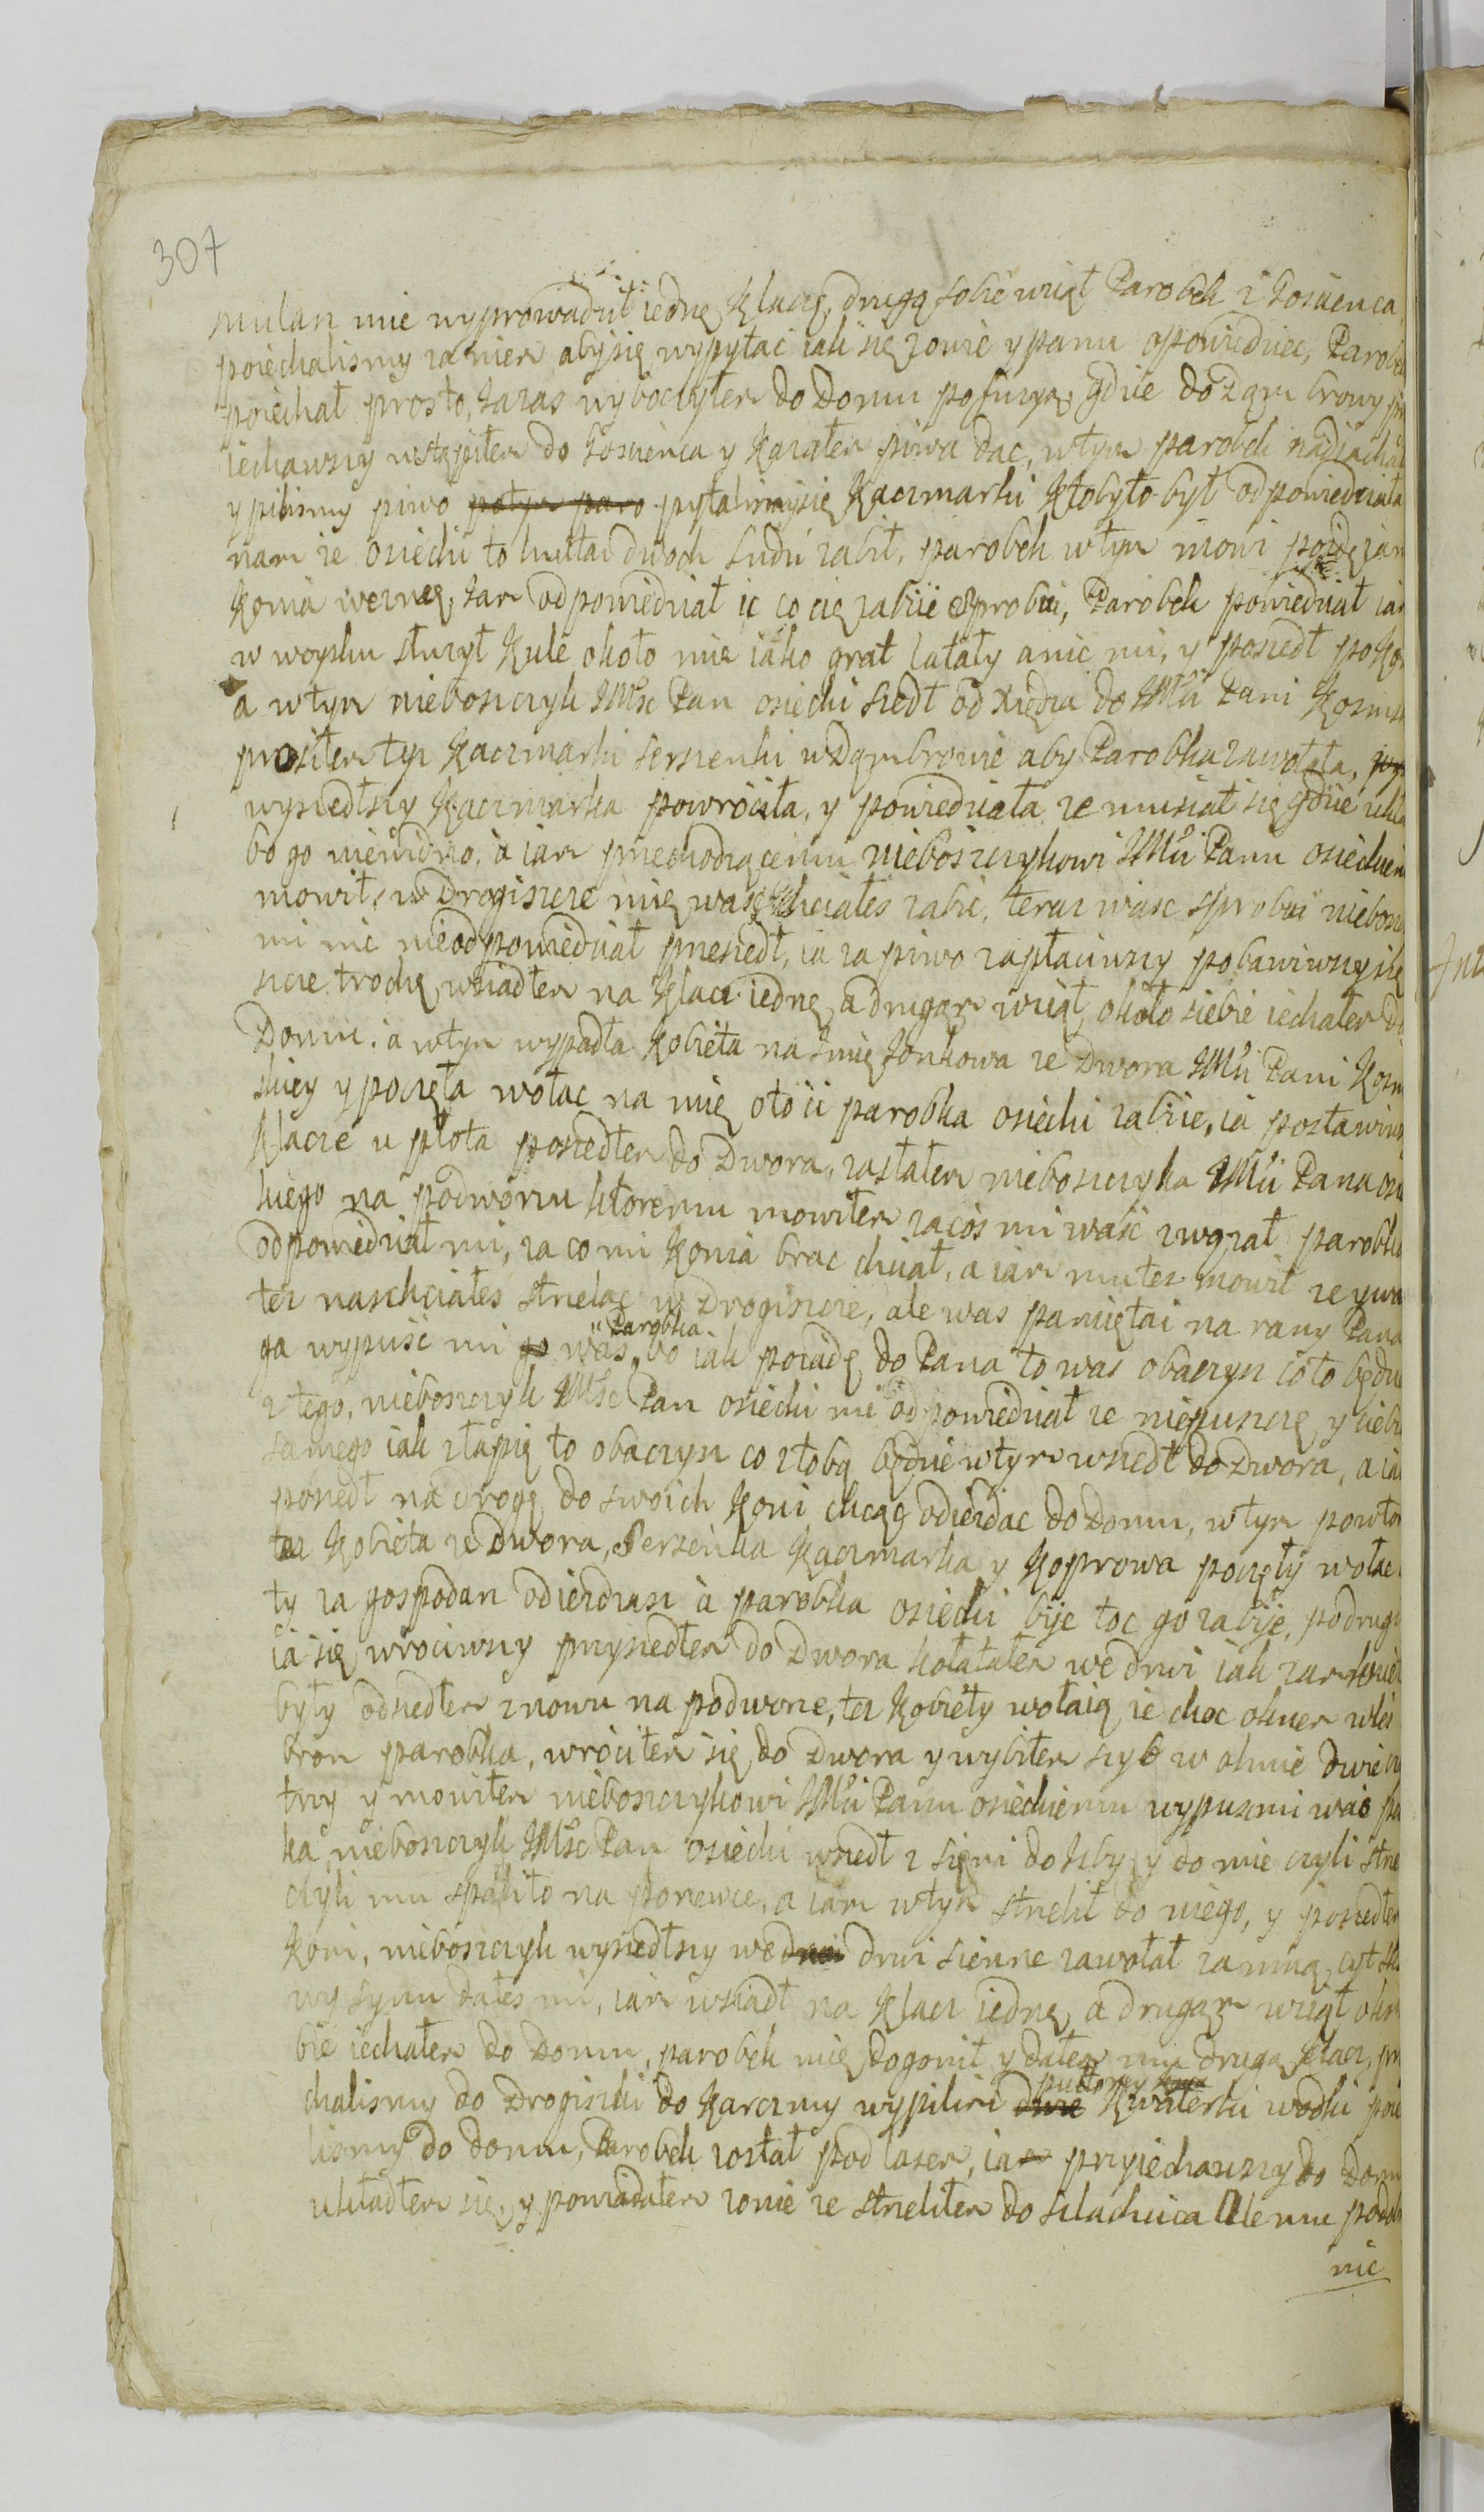 307
mularz mie wyprowadził iednę Klacz, drugą sobie wziął Parobek z Gościenca,
poiechalismy za niem abysię wypytac iak się zowie y panu opowiedziec, Parobek
poiechał prosto, Jazas wyboczyłem do Domu po furyą, gdzie do Dąmbrowy prz
iechawszy wstąpiłem do Goscienca y Kazałem piwa dac, wtym parobek nadiachał
y pilismy piwo potym paro pytalismysię Kaczmarki Ktobyto był odpowiedziała
nam ze osiecki to huttai dwoch ludzi zabił, parobek wtym mowi poidę iam
Konia wezmę, Jam odpowiedział ić co cię zabije sprobui, Parobek powiedział iam
w woysku służył Kule około mie iako grat latały a nic mi, y poszedł po Ko
a wtym nieboszczyk JMSc Pan osiecki szedł od Xiędza do JMCi Pani Kosins
prosiłem tyi Kaczmarki Serszenki w Dąmbrowie aby Parobka zawołała,
wyszedłszy Kaczmarka powróciła, y powiedziała ze musiał się gdzie
bo go niewidno, a iam przechodzącemu nieboszczykowi JMCi Panu osieckiem
mowił, w Drogiszcze mię waść chciałes zabic, teraz wasc sprobui niebosz
mi nic nieodpowiedział przeszedł, ia za piwo zapłaciwszy pobawiwszy się
szcze trochę wsiadłem na Klacz iednę a drugąm wziął około siebie iechałem do
Domu. a wtym wypadła Kobieta na imię Jonkowa ze Dwora JMCi Pani Kosin
skiey y poczęła wołac na mię oto ci parobka osiecki zabije, ia postawiws
Klacze u płota poszedłem do Dwora, zastałem nieboszczyka JMCi Pana osi
kiego na podworzu ktoremu mowiłem zacos mi waść zwązał parobka
odpowiedział mi, za co mi Konia brac chciał, a iam mutez mowił ze y wa
tez naschciałes strzelac w Drogiszcze, ale was pamiętai na rany Pana
ga wypuśc mi go was Parobka bo iak poiadę do Pana to was obaczysz co to będzie
z tego, nieboszczyk JMSc Pan osiecki mi odpowiedział ze niepuszczę y ciebie
samego iak złapię to obaczysz co ztobą będzie wtym wszedł do Dwora, a iam
poszedł na drogę do swoich Koni chcąc odieżdac do Domu, wtym powtor
taz Kobieta ze Dwora, Serszenka Kaczmarka y Koprowa poczęły wołac
ty za gospodarz odieżdzasz a parobka osiecki bije toc go zabije, podrugi
ia się wrociwszy przyszedłem do Dwora kołatałem we drzwi iak zamknięt
były odszedłem znowu na podworze, tez Kobiety wołaią ze choc oknem wlez
bron parobka, wróciłem się do Dwora y wybiłem szyb w oknie dwie czy
trzy y mowiłem nieboszczykowi JMCi Panu osieckiemu wypuscmi was pa
ka nieboszczyk JMSc Pan osiecki wszedł z sięni do Izby y do mie czyli strze
czyli mu spaliło na ponewce, a iam wtym strzelił do niego, y poszedłem
Koni, nieboszczyk wyszedłszy we drzwi sienne zawołał za mną,
wy synu dałes mi, iam wsiadł na Klacz iednę a drugąm wziął oko
bie iechałem do Domu, parobek mię dogonił y dałem mu drugą Klacz, prz
chalismy do Drogiszki do Karczmy wypilim dwie puttory Kwaterki wodki poie
lismy do domu, Parobek został pod lasem, iam przyiechawszy do Dom
układłem się, y powiadałem zonie ze strzeliłem do szlachcica Ale mu podob
nic